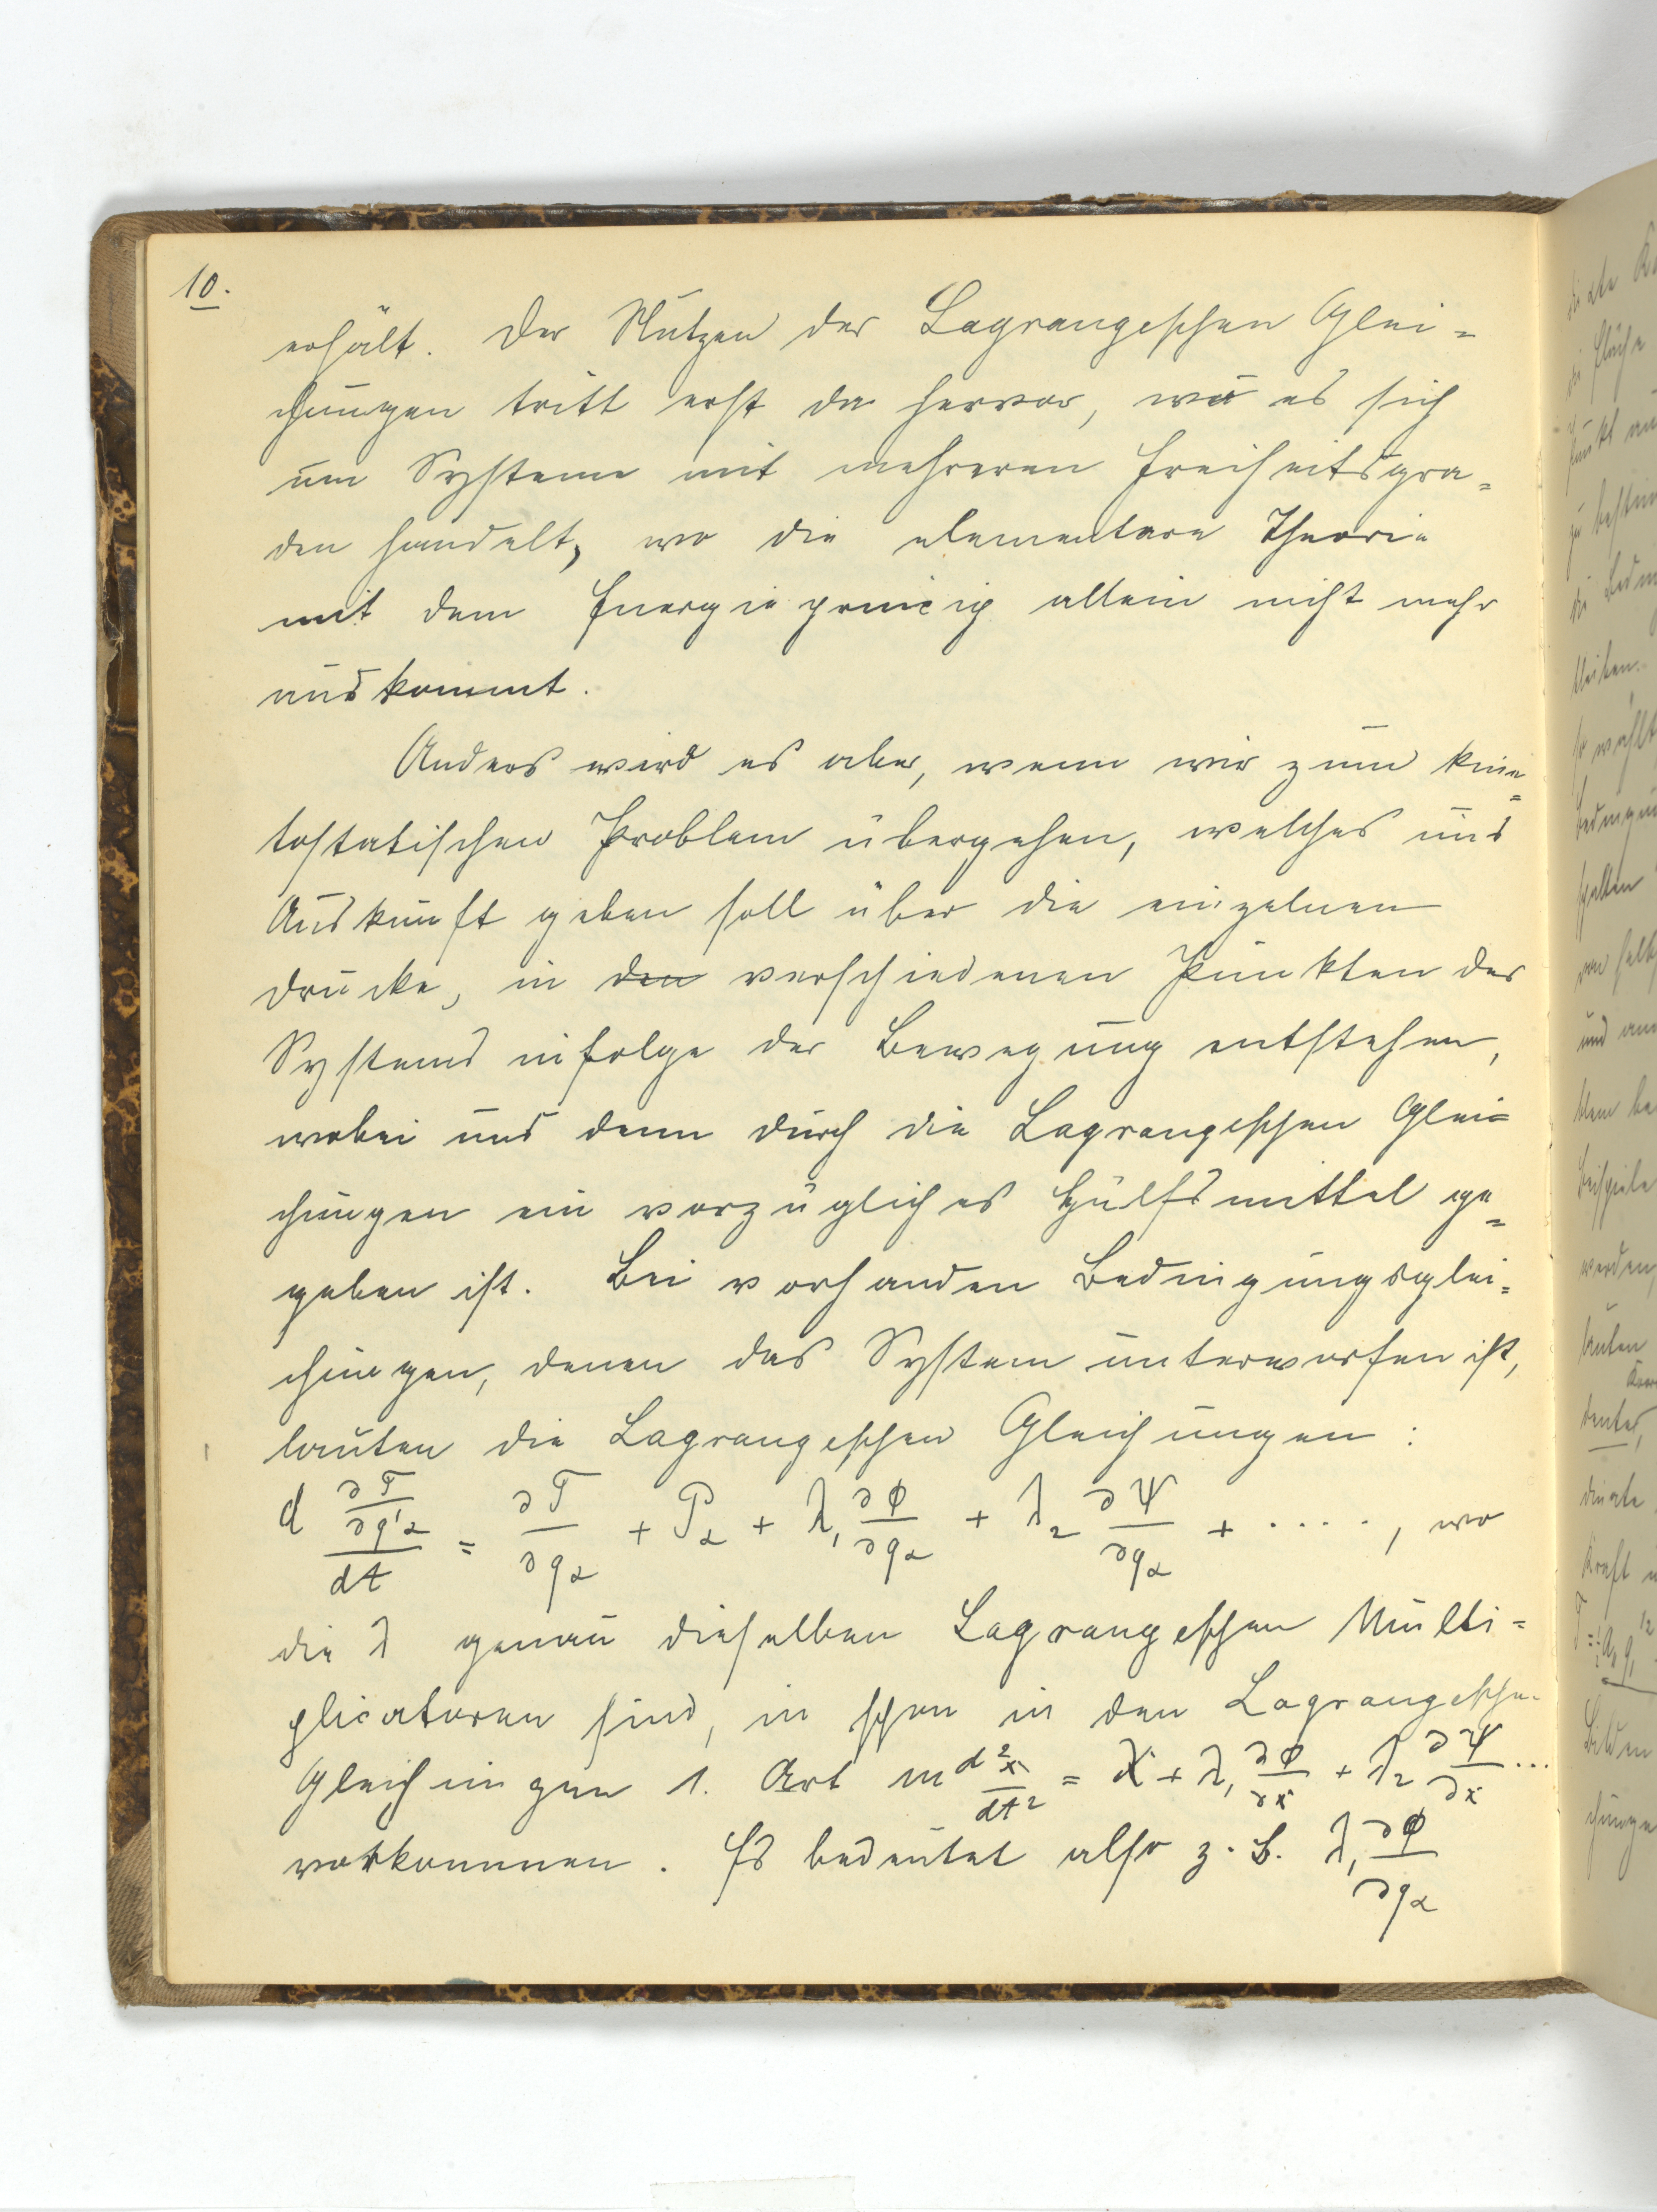 10.
erhält. Der Nutzen der Lagrangeschen Glei=
chungen tritt erst da hervor, wo es sich
um Systeme mit mehreren Freiheitsgra=
den handelt, wo die elementare Theorie
mit dem Energieprincip allein nicht mehr
auskommt.
Anders wird es aber, wenn wir zum kine=
tostatischen Problem übergehen, welches uns
Auskunft geben soll über die einzelnen
Drucke, in den verschiedenen Punkten des
Systems infolge der Bewegung entstehen,
wobei uns denn durch die Lagrangeschen Glei=
chungen ein vorzügliches Hülfsmittel ge=
geben ist. Bei vorhanden Bedingungsglei=
chungen, denen das System unterworfen ist,
lauten die Lagrangeschen Gleichungen:
d ∂T/∂q'α / dt = ∂T/∂qα + Pα + λ₁ ∂Φ/∂qα + λ₂ ∂Ψ/∂qα + ....., wo
die λ genau dieselben Lagrangeschen Multi=
plicatoren sind, in schon in den Lagrangeschen
Gleichungen 1. Art m d²x/dt² = X + λ₁ ∂Φ/∂x + λ₂ ∂Ψ/∂x ...
vorkommen. Es bedeutet also z. B. λ₁ ∂Φ/∂qα